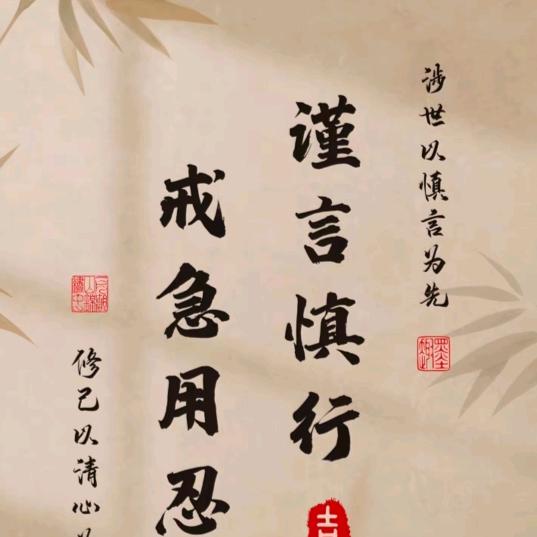 涉世以慎言为先
谨言慎行
吉
戒急用忍
修己以清心